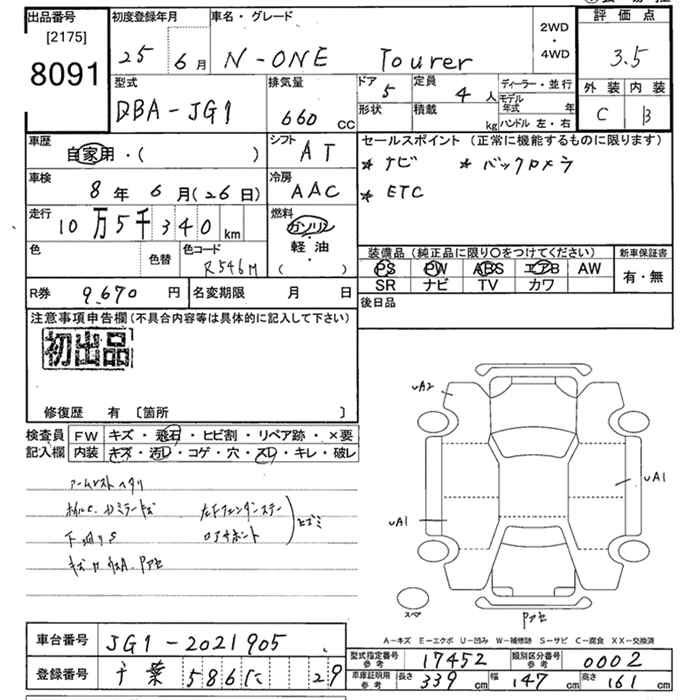 出品番号
[2175]
8091
初度登録年月
25 6月
車名・グレード
N-ONE Tourer
2WD
・
4WD
評価点
3.5
外装 内装
C B
型式
DBA-JG1
排気量
660 CC
ドア
5
定員
4 人
形状
積載
kg
ディーラー・並行
モデル年式 年
ハンドル 左・右
車歴
自家用・( )
シフト
AT
車検
8年 6月(26日)
冷房
AAC
走行
10万5千340km
燃料
ガソリン
軽・油
( )
色
色替
色コード
R546M
R券 9,670円
名変期限 月 日
セールスポイント (正常に機能するものに限ります)
* ナビ * バックカメラ
* ETC
装備品 (純正品に限り○をつけてください)
PS PW ABS エアB AW
SR ナビ TV カワ
新車保証書
有・無
後日品
注意事項申告欄(不具合内容等は具体的に記入して下さい)
初出品
修復歴 有 〔箇所 〕
検査員記入欄
FW キズ・飛石・ヒビ割・リペア跡・×要
内装 キズ・汚レ・コゲ・穴・スレ・キレ・破レ
アームレストヘタリ
uA2
uA1
uA1
スペア
A-キズ E-エクボ U-凹み W-補修跡 S-サビ C-腐食 XX-交換済
車台番号 JG1-2021905
登録番号 千葉 586 に 29
型式指定番号 参考 17452
類別区分番号 参考 0002
車庫証明用 参考 長さ 339cm 幅 147cm 高さ 161cm